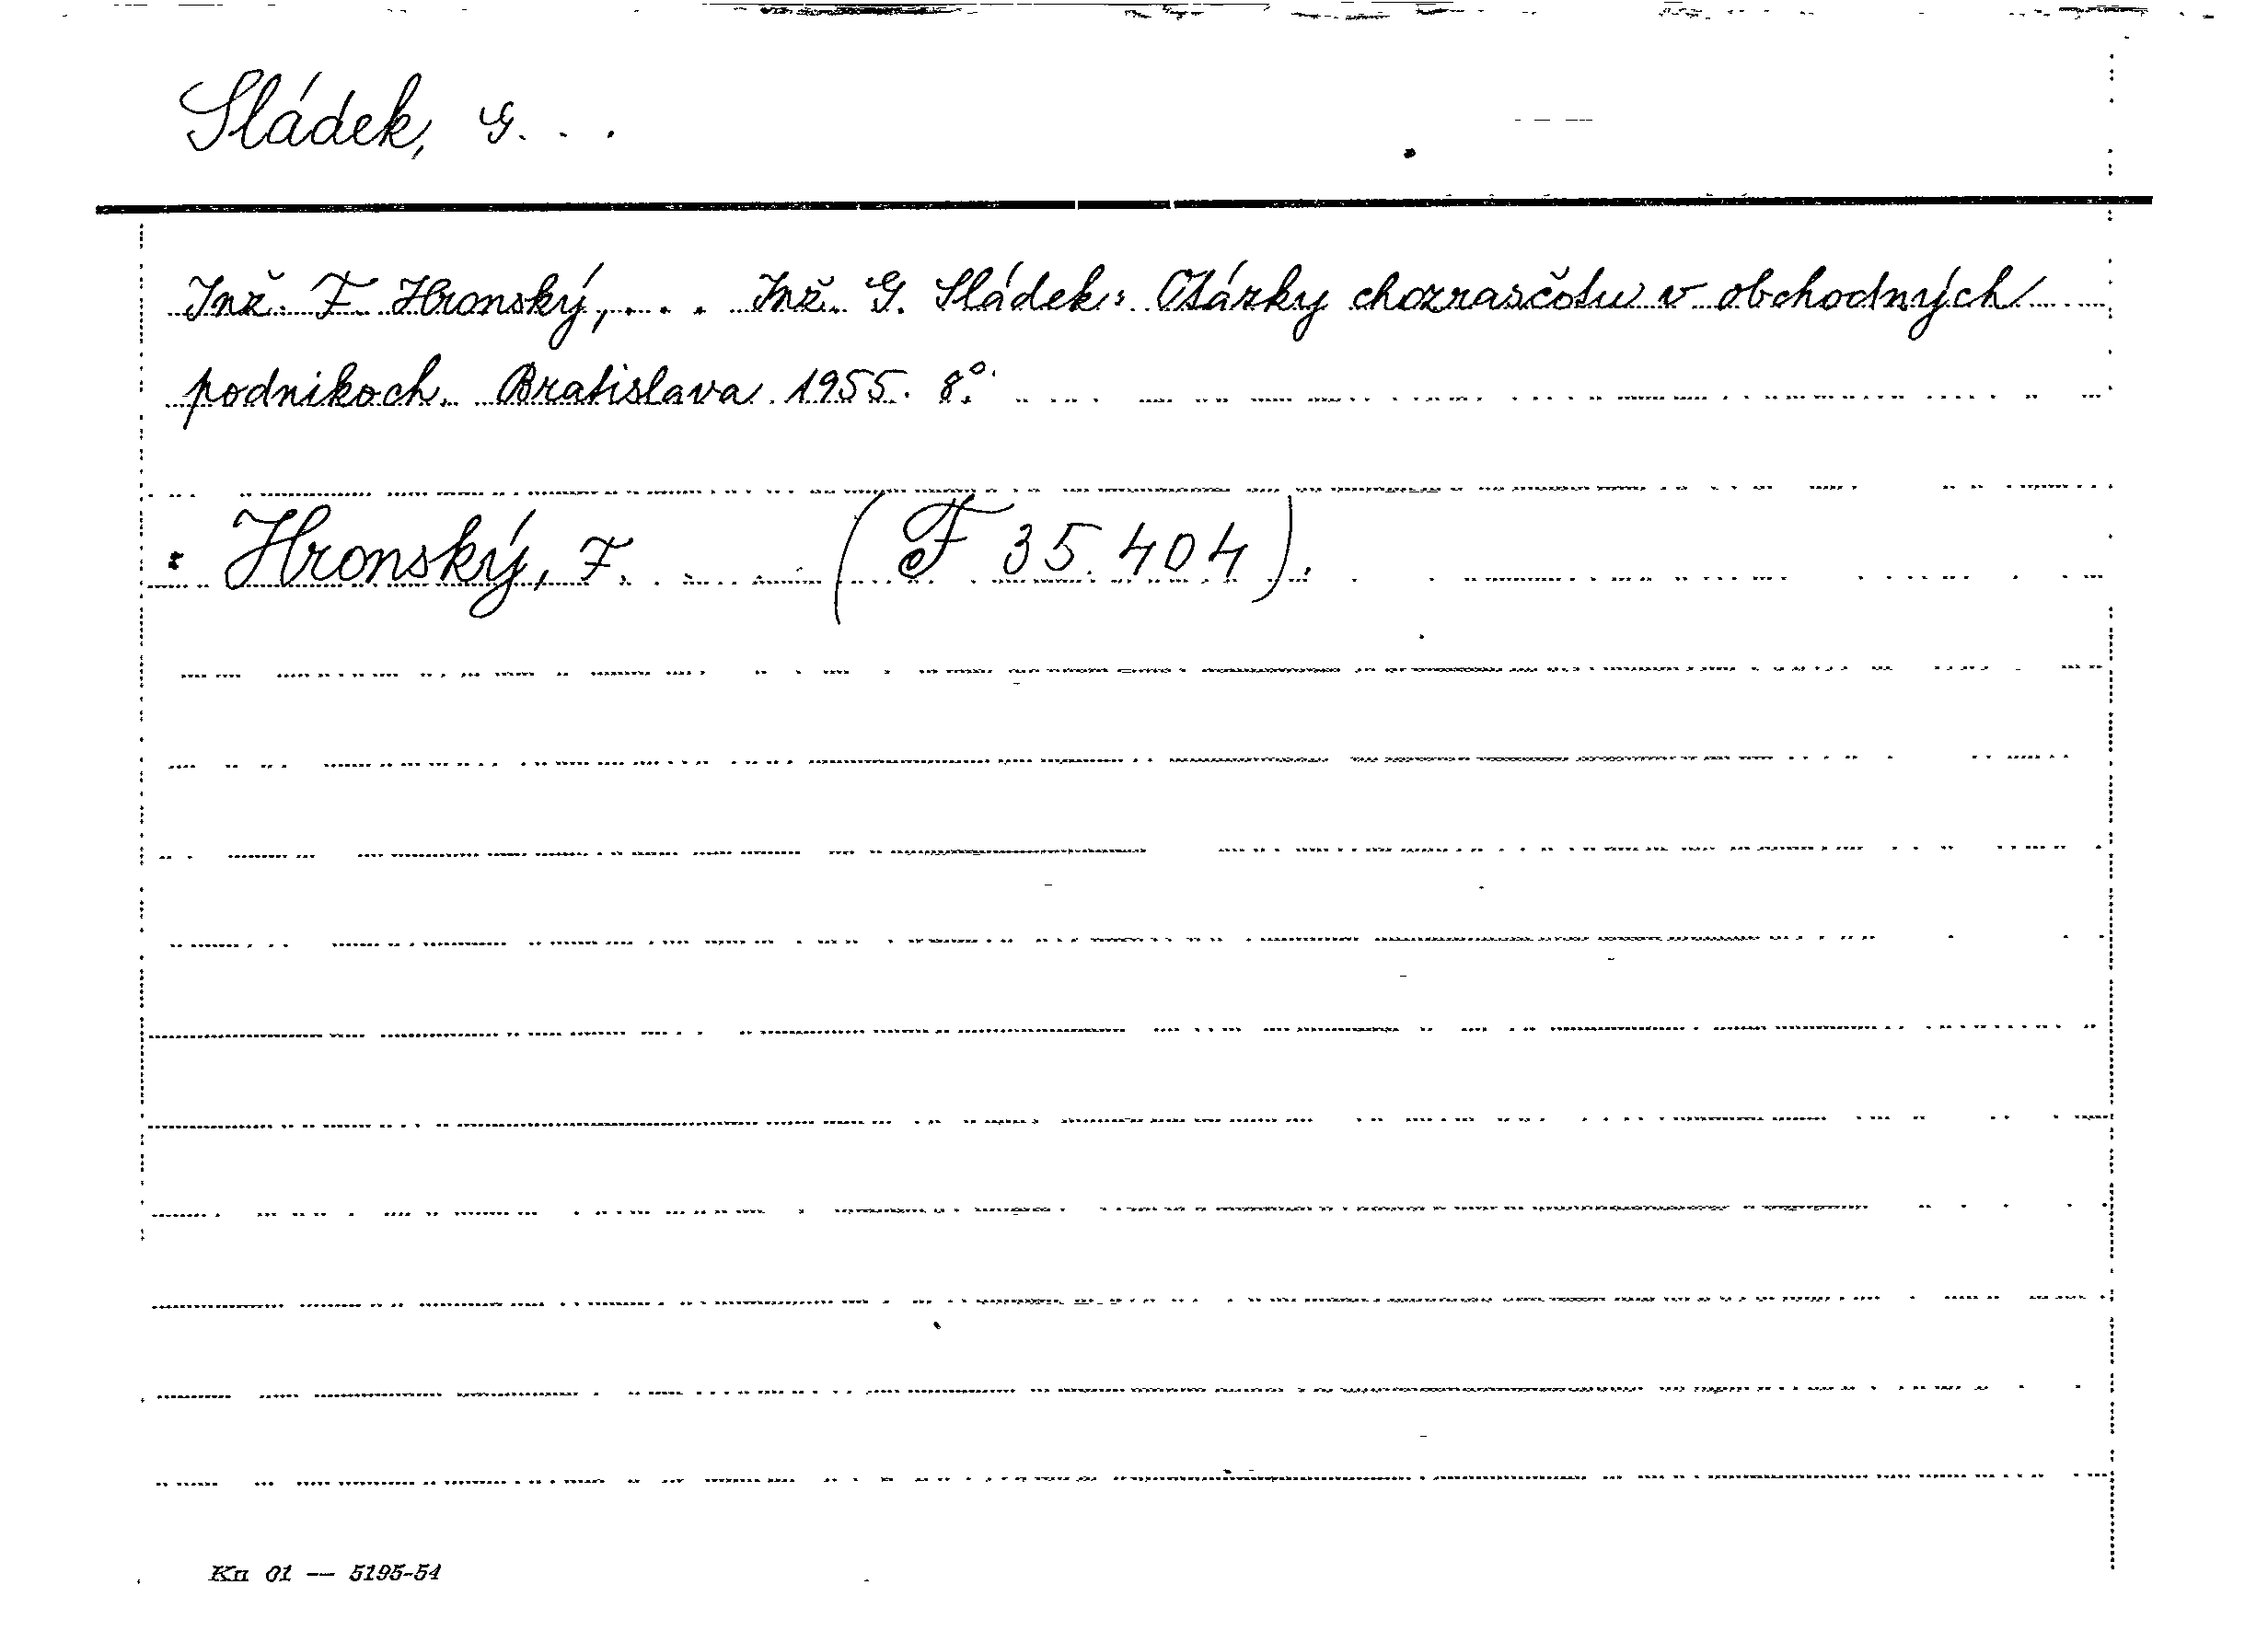 Sládek, G. . .
Inž. F. Hronský, . . . Inž. G. Sládek: Otázky chozrasčotu v obchodných
podnikoch. Bratislava 1955. 8°.
: Hronský, F. (F 35.404).
Kn 01 — 5195-54